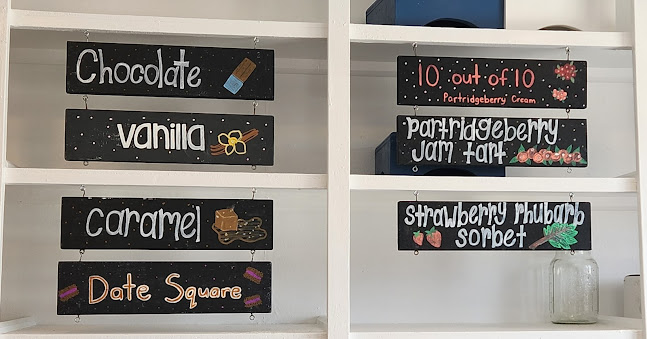 Chocolate
vanilla
caramel
Date Square
10 out of 10
Partridgeberry Cream
partridgeberry
jam tart
strawberry rhubarb
sorbet